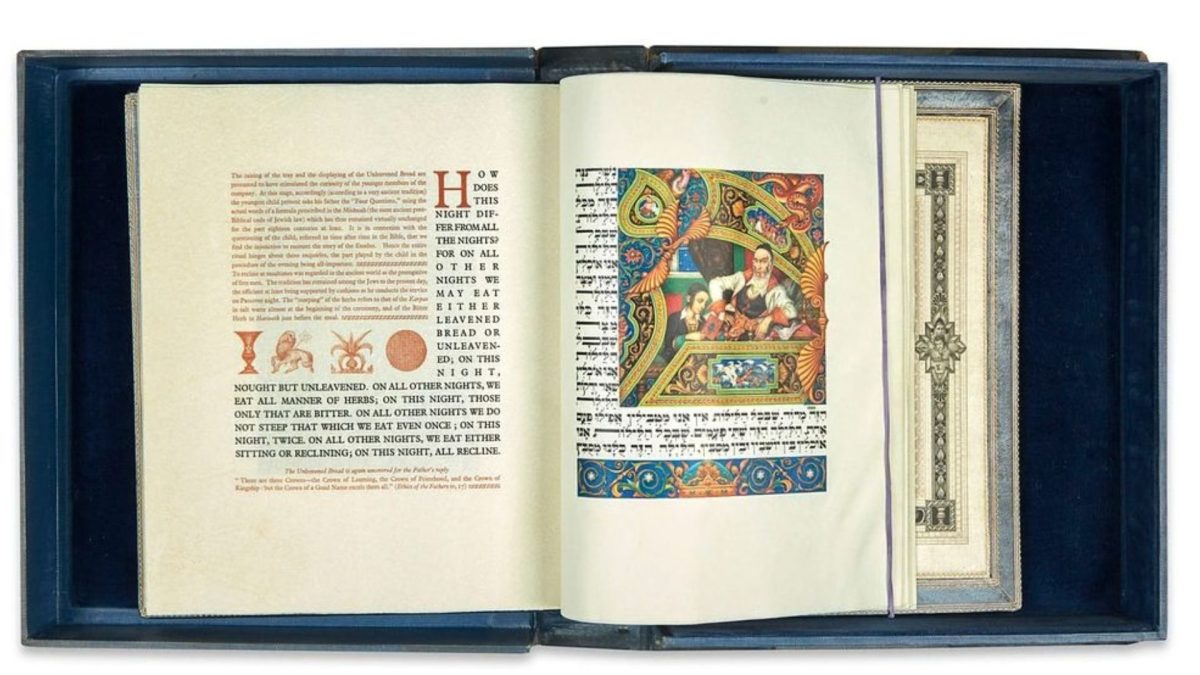 The raising of the tray and the displaying of the Unleavened Bread are
presumed to have stimulated the curiosity of the younger members of the
company. At this stage, accordingly (according to a very ancient tradition)
the youngest child present asks his father the "Four Questions," using the
actual words of a formula prescribed in the Mishnah (the most ancient post-
Biblical code of Jewish law) which has thus remained virtually unchanged
for the past eighteen centuries at least. It is in connexion with the
questioning of the child, referred to time after time in the Bible, that we
find the injunction to recount the story of the Exodus. Hence the entire
ritual hinges about these enquiries, the part played by the child in the
procedure of the evening being all-important.
To recline at mealtimes was regarded in the ancient world as the prerogative
of free men. The tradition has remained among the Jews to the present day,
the officiant at least being supported by cushions as he conducts the service
on Passover night. The "steeping" of the herbs refers to that of the Karpas
in salt water almost at the beginning of the ceremony, and of the Bitter
Herb in Haroseth just before the meal.
HOW
DOES
THIS
NIGHT DIF-
FER FROM ALL
THE NIGHTS?
FOR ON ALL
OTHER
NIGHTS WE
MAY EAT
EITHER
LEAVENED
BREAD OR
UNLEAVEN-
ED; ON THIS
NIGHT,
NOUGHT BUT UNLEAVENED. ON ALL OTHER NIGHTS, WE
EAT ALL MANNER OF HERBS; ON THIS NIGHT, THOSE
ONLY THAT ARE BITTER. ON ALL OTHER NIGHTS WE DO
NOT STEEP THAT WHICH WE EAT EVEN ONCE ; ON THIS
NIGHT, TWICE. ON ALL OTHER NIGHTS, WE EAT EITHER
SITTING OR RECLINING; ON THIS NIGHT, ALL RECLINE.
The Unleavened Bread is again uncovered for the Father's reply
"There are three Crowns—the Crown of Learning, the Crown of Priesthood, and the Crown of
Kingship—but the Crown of a Good Name excels them all." (Ethics of the Fathers iv, 17)
הזה מכל
שבכל הלילות אין אנו מטבילין אפילו פעם
אחת הלילה הזה שתי פעמים. שבכל הלילות אנו
אוכלין בין יושבין ובין מסובין. הלילה הזה כלנו מסבין